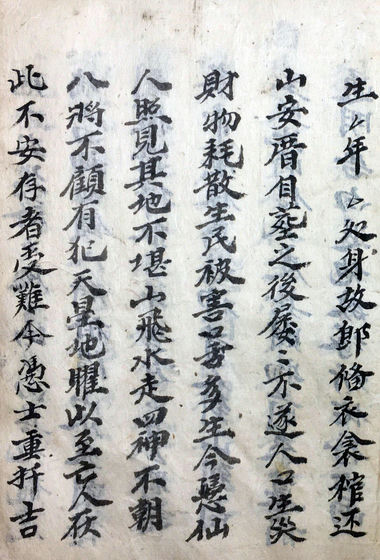 生〻年〻处身故郎俻衣衾棺还
山安厝自塟之後屡〻不遂人口生災
財物耗散生民被害口舌多生今懇仙
人照見其地不堪山飛水走四神不朝
八將不顧有犯天星地曜以至亡人在
此不安存者受難今憑士重扦吉